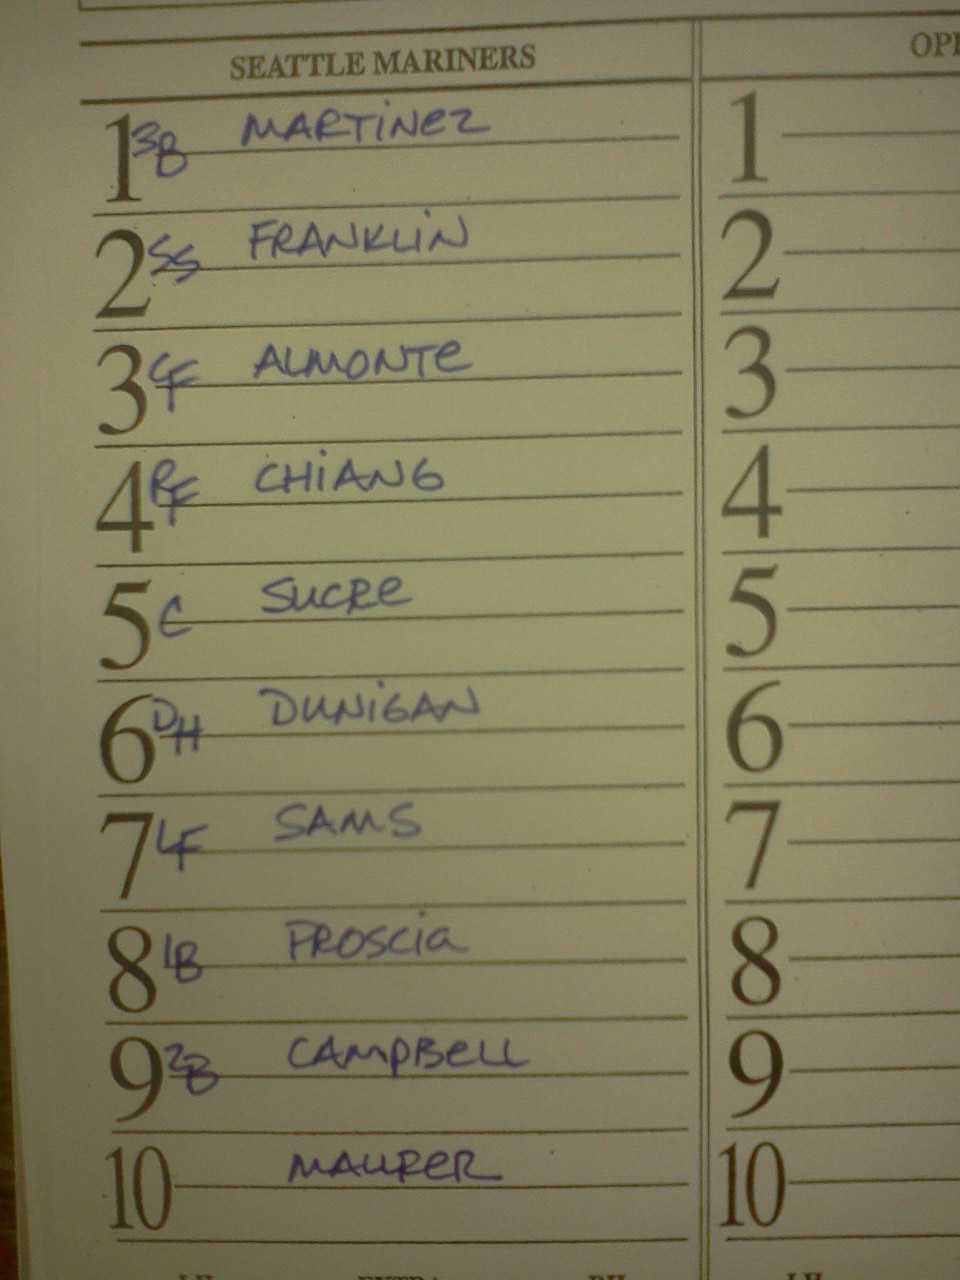 SEATTLE MARINERS
1 3B MARTINEZ 1
2 SS FRANKLIN 2
3 CF ALMONTE 3
4 RF CHIANG 4
5 C SUCRE 5
6 DH DUNIGAN 6
7 LF SAMS 7
8 1B PROSCIA 8
9 2B CAMPBELL 9
10 MAURER 10